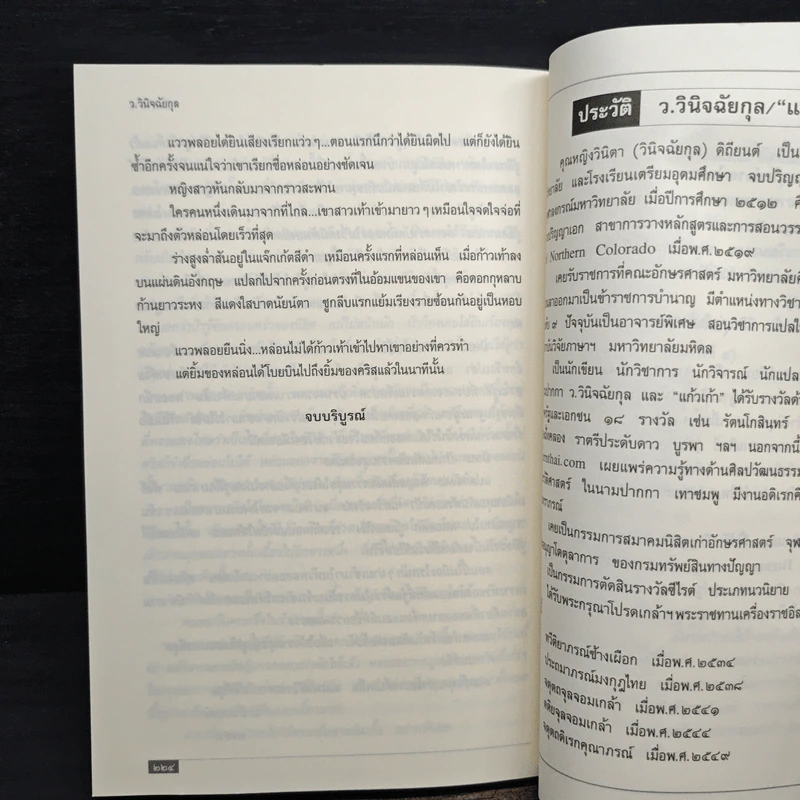 ว.วินิจฉัยกุล
แววพลอยได้ยินเสียงเรียกแว่ว ๆ...ตอนแรกนึกว่าได้ยินผิดไป แต่ก็ยังได้ยิน
ซ้ำอีกครั้งจนแน่ใจว่าเขาเรียกชื่อหล่อนอย่างชัดเจน
หญิงสาวหันกลับมาจากราวสะพาน
ใครคนหนึ่งเดินมาจากที่ไกล...เขาสาวเท้าเข้ามายาว ๆ เหมือนใจจดใจจ่อที่
จะมาถึงตัวหล่อนโดยเร็วที่สุด
ร่างสูงล่ำสันอยู่ในแจ็กเก้ตสีดำ เหมือนครั้งแรกที่หล่อนเห็น เมื่อก้าวเท้าลง
บนแผ่นดินอังกฤษ แปลกไปจากครั้งก่อนตรงที่ในอ้อมแขนของเขา คือดอกกุหลาบ
ก้านยาวระหง สีแดงใสบาดนัยน์ตา ชูกลีบแรกแย้มเรียงรายซ้อนกันอยู่เป็นหอบ
ใหญ่
แววพลอยยืนนิ่ง...หล่อนไม่ได้ก้าวเท้าเข้าไปหาเขาอย่างที่ควรทำ
แต่ยิ้มของหล่อนได้โบยบินไปถึงยิ้มของคริสแล้วในนาทีนั้น
จบบริบูรณ์
๒๒๔
ประวัติ ว.วินิจฉัยกุล/“แ
คุณหญิงวินิตา (วินิจฉัยกุล) ดิถียนต์ เป็น
และโรงเรียนเตรียมอุดมศึกษา จบปริญญ
มหาวิทยาลัย เมื่อปีการศึกษา ๒๕๑๒
สาขาการวางหลักสูตรและการสอนวรร
Northern Colorado เมื่อพ.ศ.๒๕๑๙
เคยรับราชการที่คณะอักษรศาสตร์ มหาวิทยาลัยศิ
ออกมาเป็นข้าราชการบำนาญ มีตำแหน่งทางวิชา
๙ ปัจจุบันเป็นอาจารย์พิเศษ สอนวิชาการแปลใ
วิจัยภาษาฯ มหาวิทยาลัยมหิดล
เป็นนักเขียน นักวิชาการ นักวิจารณ์ นักแปล
ปากกา ว.วินิจฉัยกุล และ “แก้วเก้า” ได้รับรางวัลด้
และเอกชน ๑๘ รางวัล เช่น รัตนโกสินทร์
สองฝั่งคลอง ราตรีประดับดาว บูรพา ฯลฯ นอกจากนี้
rnthai.com เผยแพร่ความรู้ทางด้านศิลปวัฒนธรรม
ในนามปากกา เทาชมพู มีงานอดิเรกคื
เคยเป็นกรรมการสมาคมนิสิตเก่าอักษรศาสตร์ จุฬ
อนุญาโตตุลาการ ของกรมทรัพย์สินทางปัญญา
เป็นกรรมการตัดสินรางวัลซีไรต์ ประเภทนวนิยาย
ได้รับพระกรุณาโปรดเกล้าฯ พระราชทานเครื่องราชอิส
ทวีติยาภรณ์ช้างเผือก เมื่อพ.ศ.๒๕๓๔
ประถมาภรณ์มงกุฎไทย เมื่อพ.ศ.๒๕๓๘
จตุตถจุลจอมเกล้า เมื่อพ.ศ.๒๕๔๑
ตติยจุลจอมเกล้า เมื่อพ.ศ.๒๕๔๔
จตุตถดิเรกคุณาภรณ์ เมื่อพ.ศ.๒๕๔๙